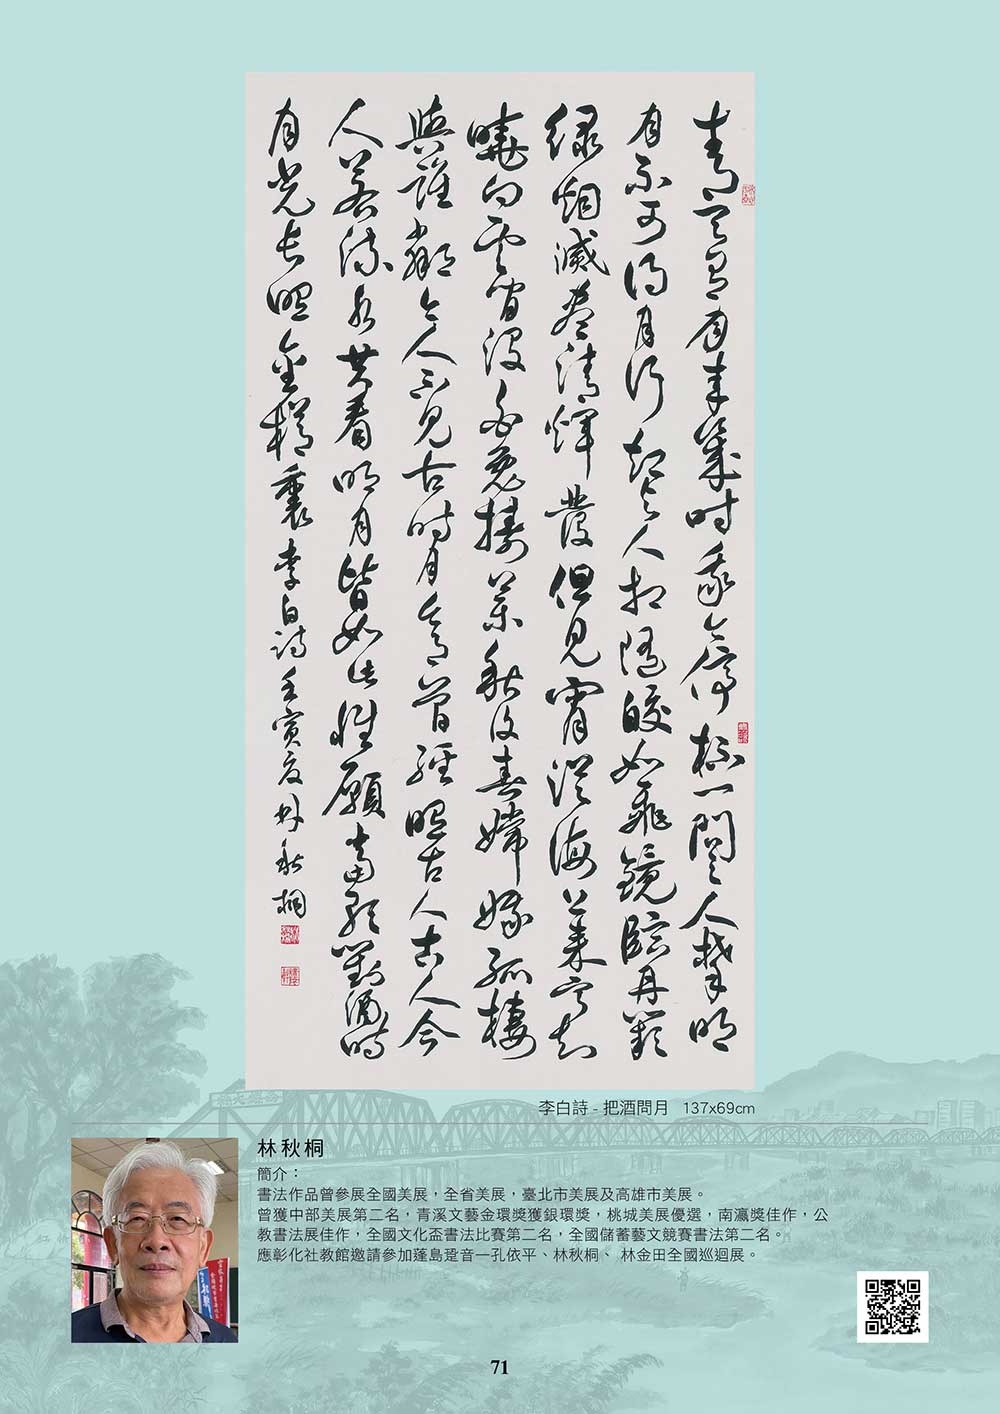 青天有月來幾時我今停杯一問之人攀明
月不可得月行却與人相隨皎如飛鏡臨丹闕
綠烟滅盡清煇發但見宵從海上來寧知
曉向雲間没白兔搗藥秋復春嫦娥孤棲
與誰鄰今人不見古時月今月曾經照古人古人今
人若流水共看明月皆如此惟願當歌對酒時
月光長照金樽裏李白詩壬寅夏林秋桐
李白詩 - 把酒問月 137x69cm
林秋桐
簡介：
書法作品曾參展全國美展，全省美展，臺北市美展及高雄市美展。
曾獲中部美展第二名，青溪文藝金環獎獲銀環獎，桃城美展優選，南瀛獎佳作，公
教書法展佳作，全國文化盃書法比賽第二名，全國儲蓄藝文競賽書法第二名。
應彰化社教館邀請參加蓬島跫音—孔依平、林秋桐、 林金田全國巡迴展。
71